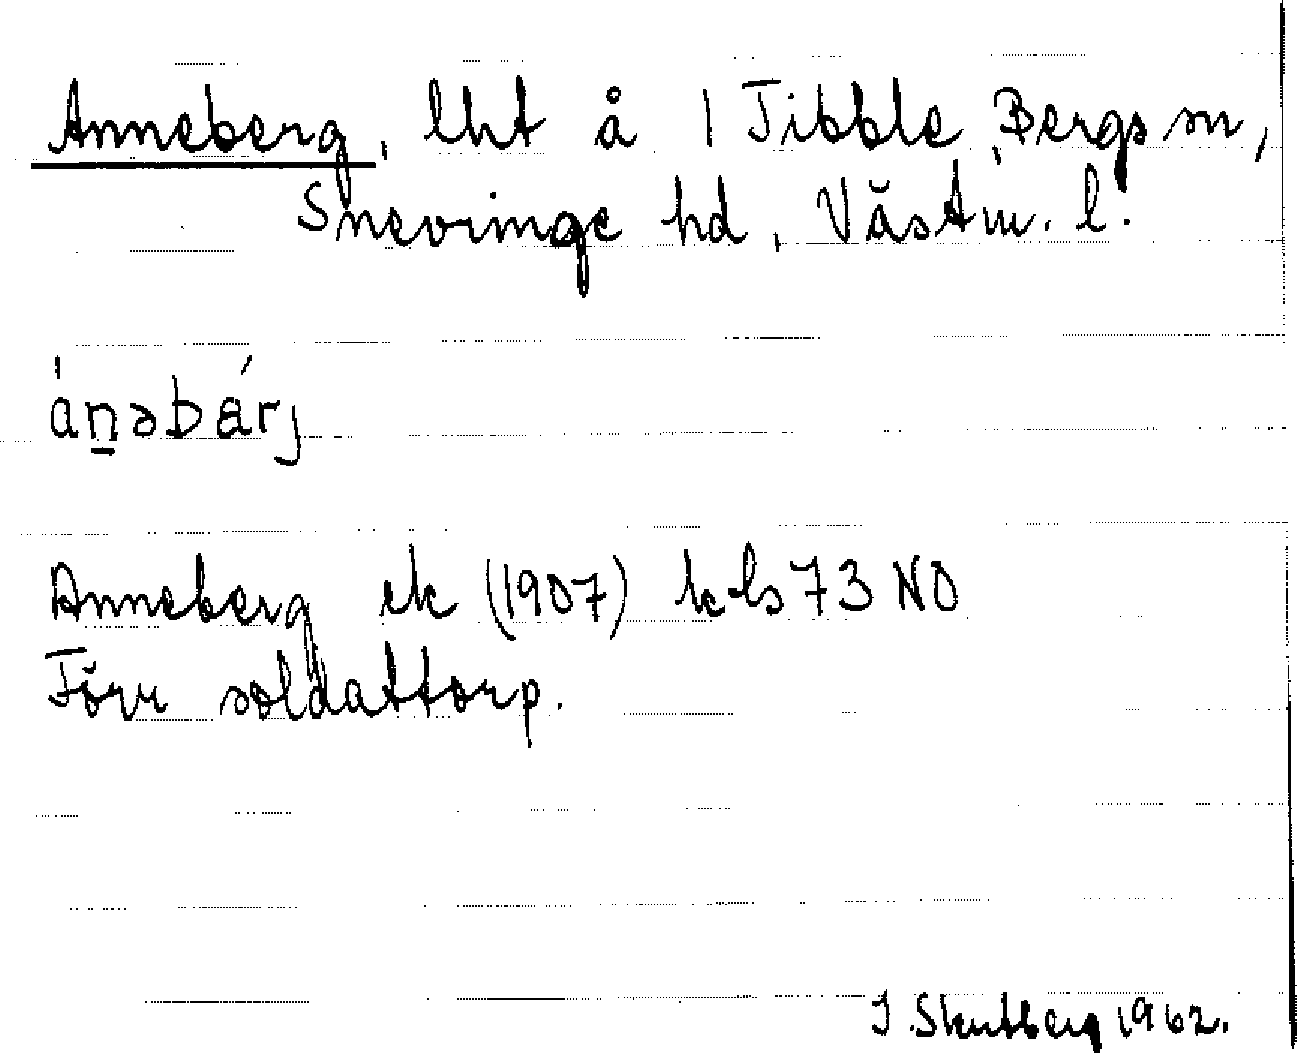 Anneberg, lht å 1 Tibble, Bergs sn,
Snevringe hd, Västm. l.
ánəbárj
Anneberg ek (1907) k-bs 73 NO
Förr soldattorp.
I Skutberg 1962.